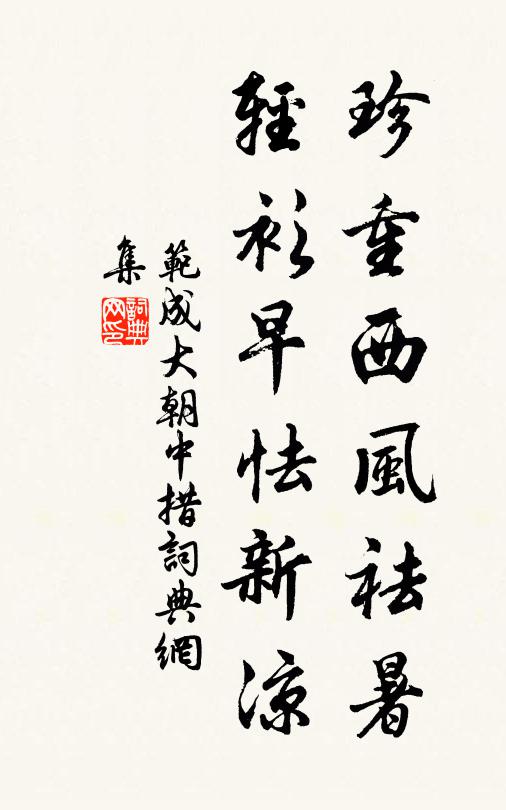 珍重西風祛暑
輕衫早怯新涼
範成大朝中措詞典網
集
詞典網印